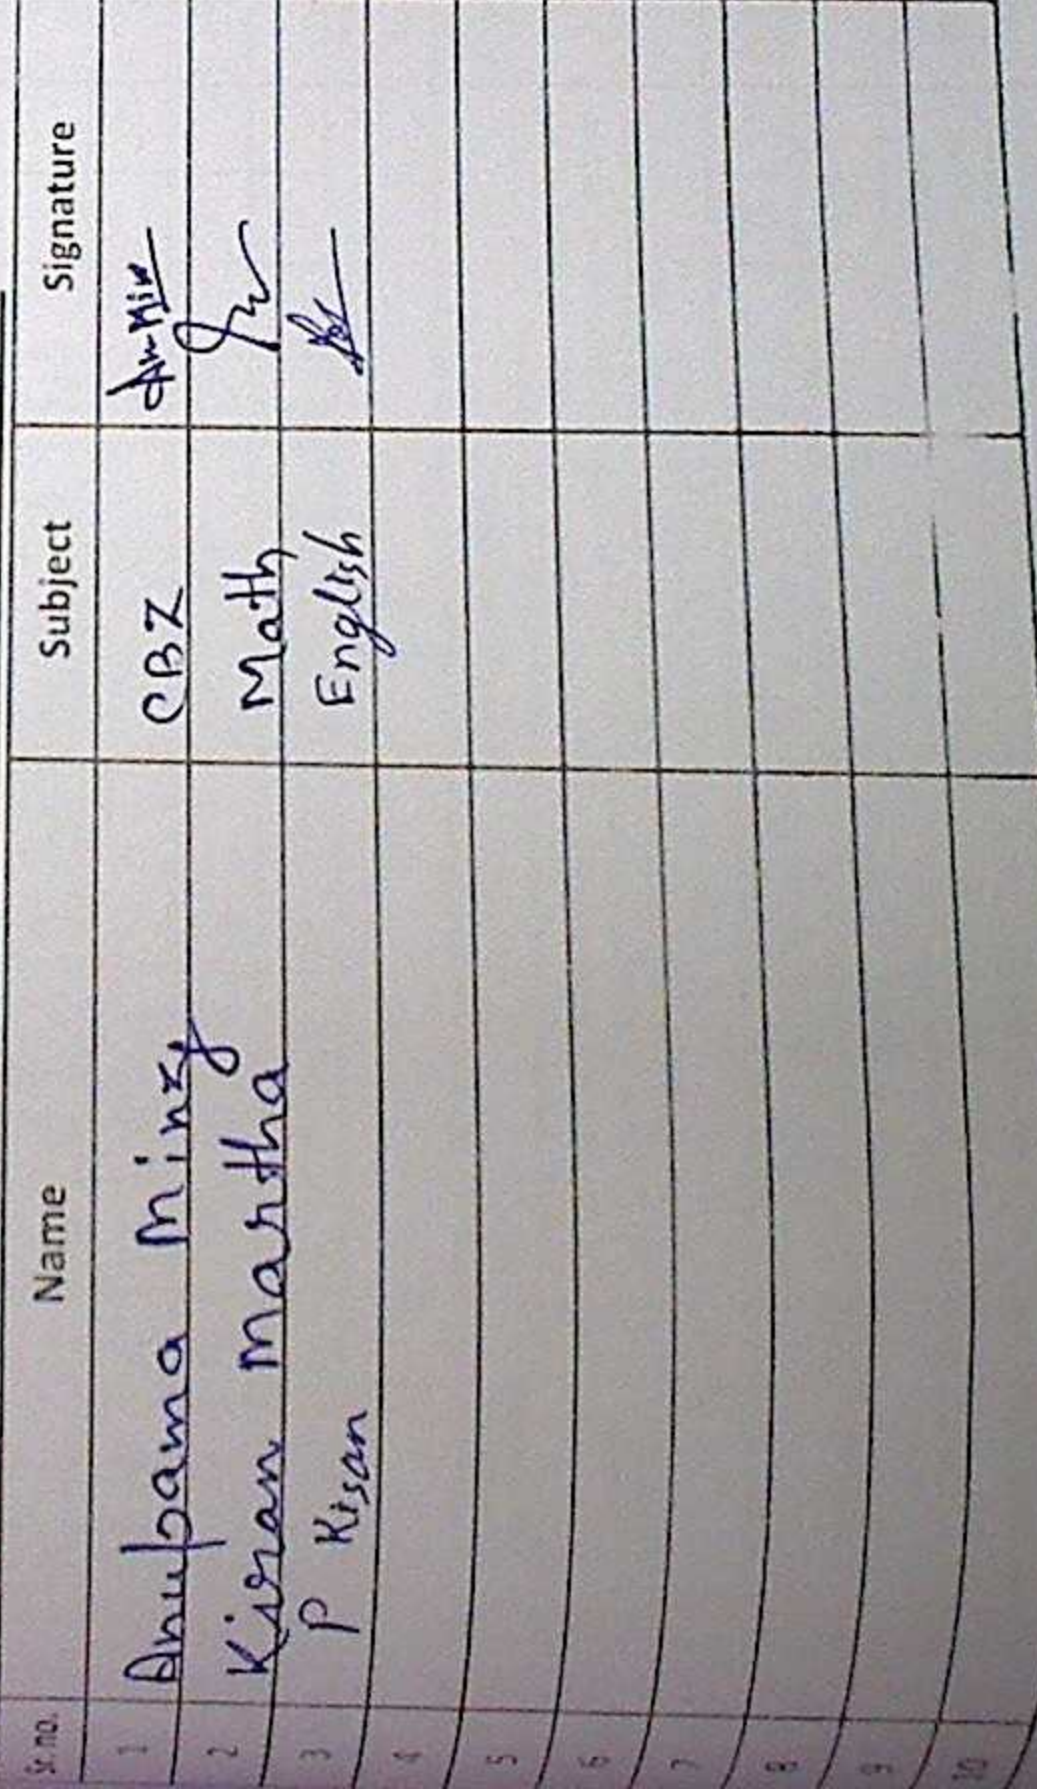 Sr. no. Name Subject Signature
1 Anupama Minz CBZ An Min
2 Kiran Martha Math
3 P Kisan English
4
5
6
7
8
9
10